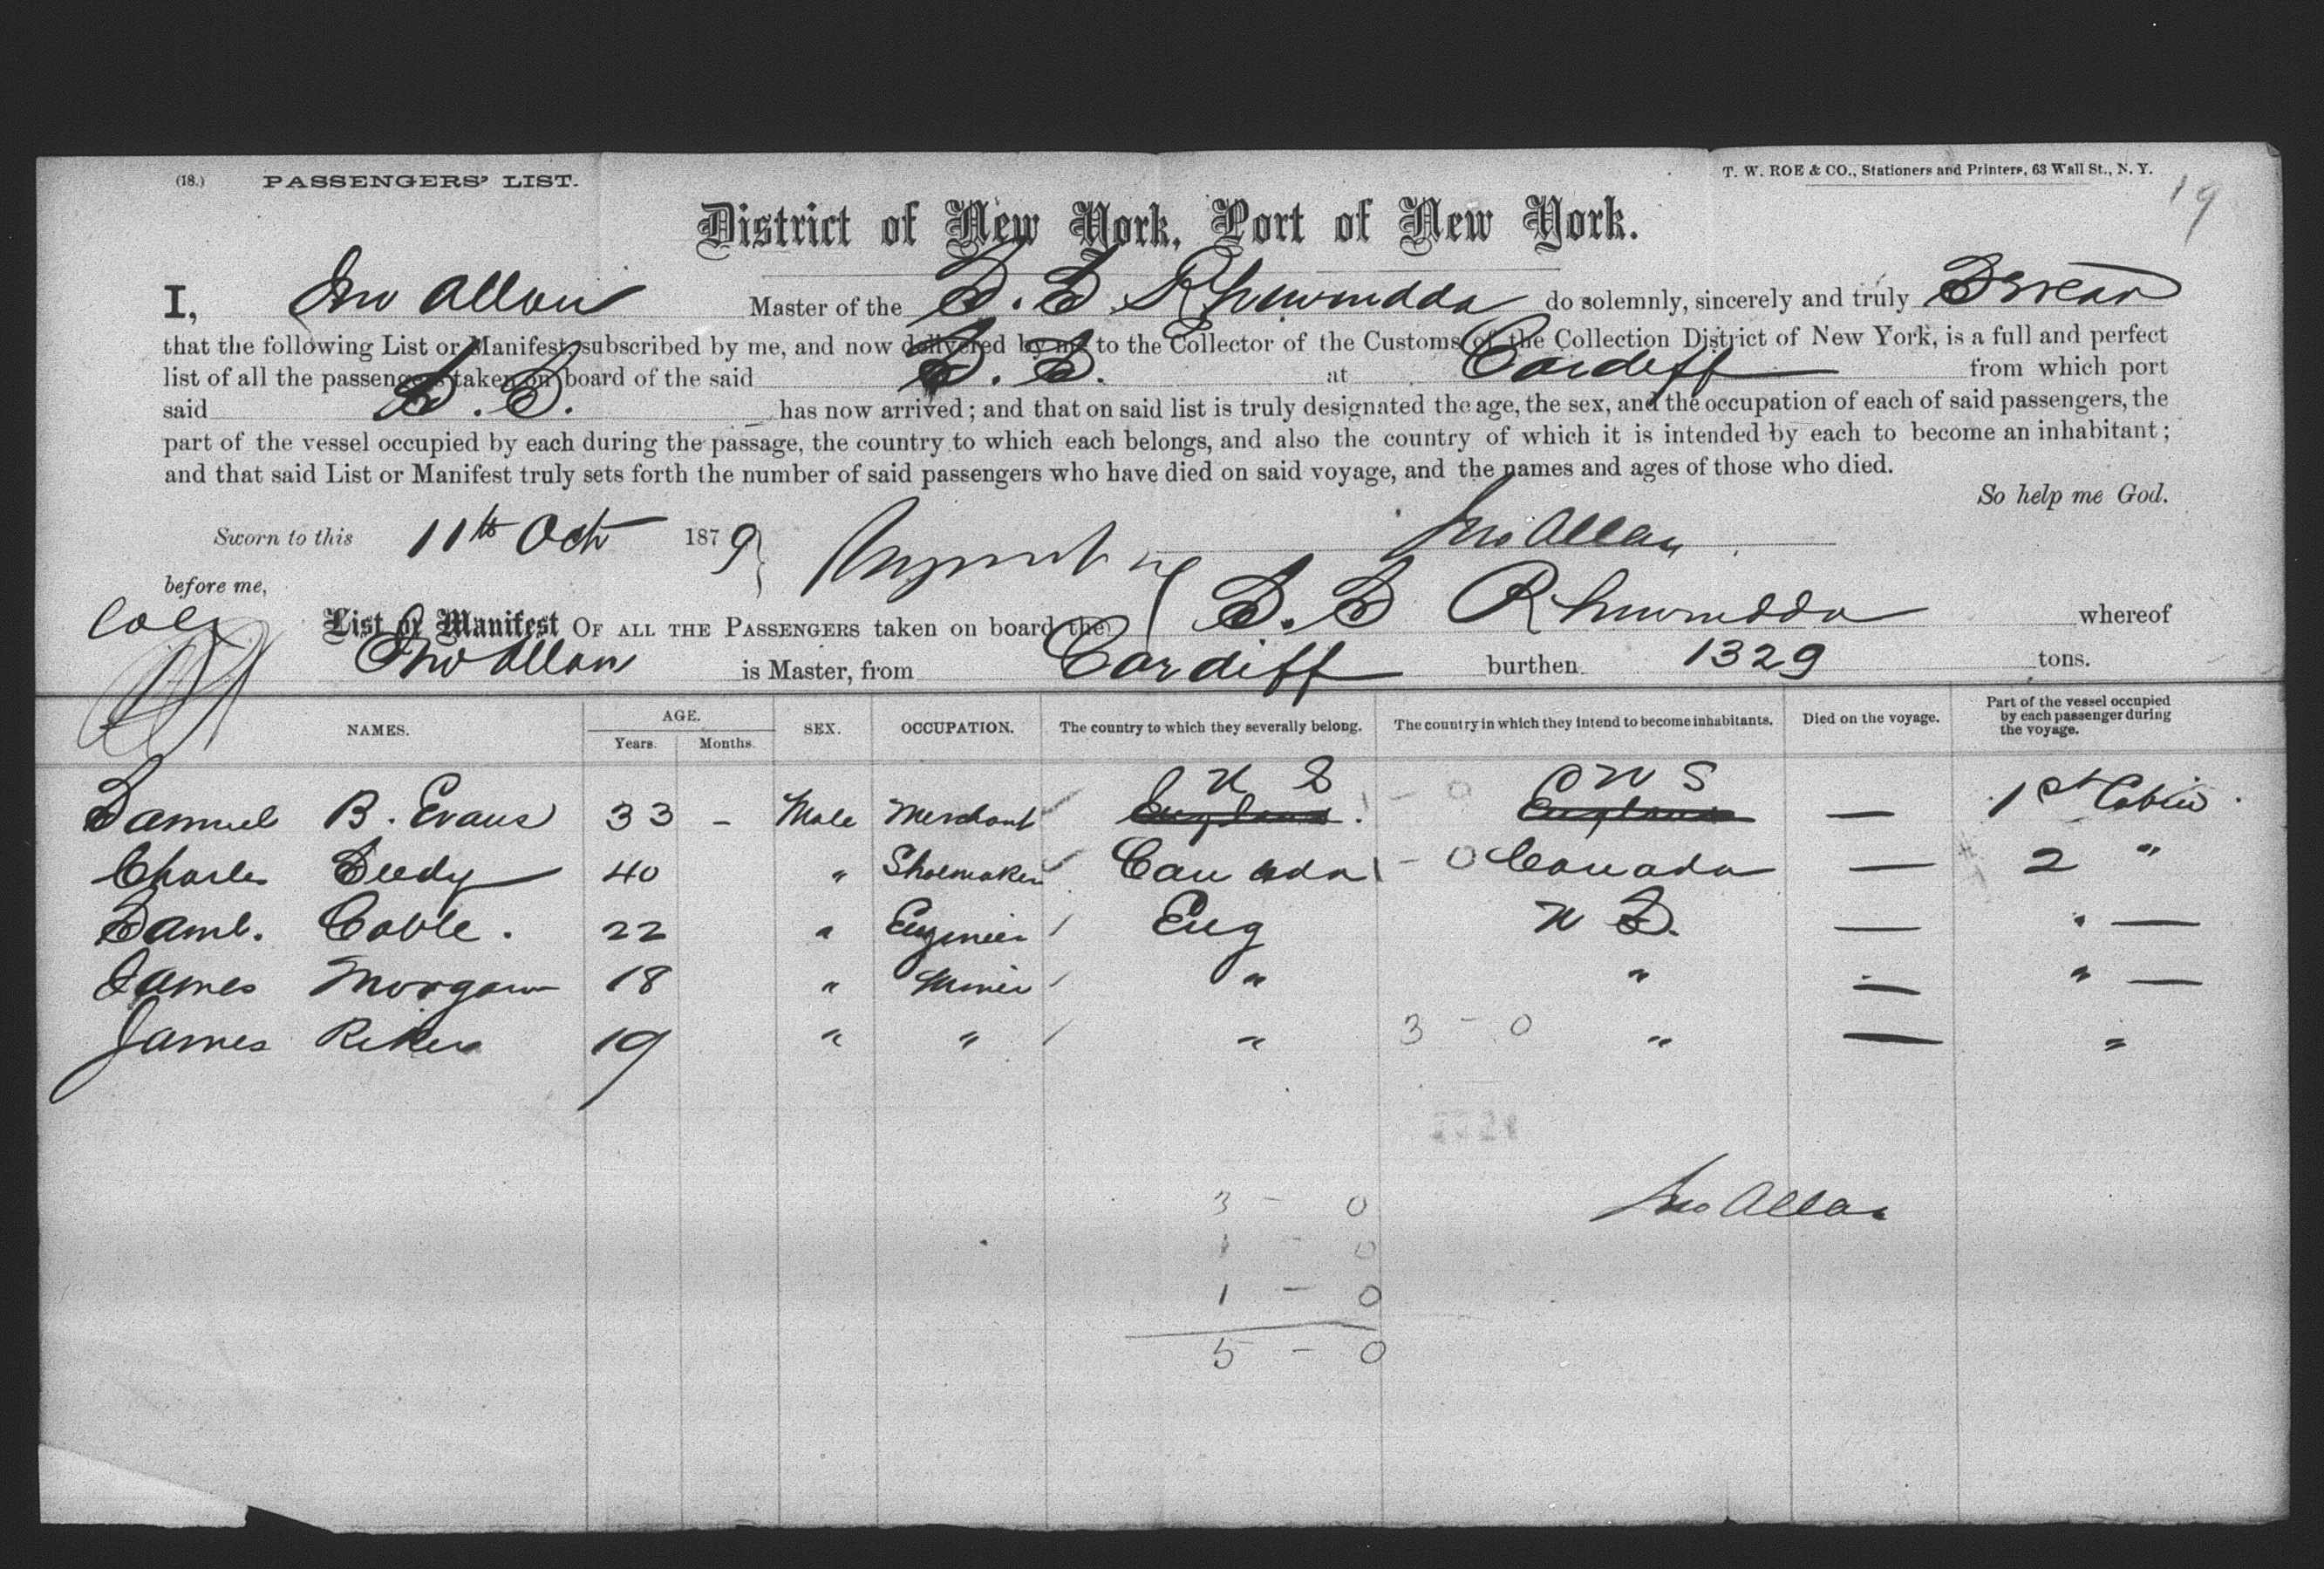 (18.) PASSENGERS' LIST. T. W. ROE & CO., Stationers and Printers, 63 Wall St., N. Y.
19
District of New York, Port of New York.
I, Jno Allan Master of the S. S Rhiwindda do solemnly, sincerely and truly Swear
that the following List or Manifest, subscribed by me, and now delivered by me to the Collector of the Customs of the Collection District of New York, is a full and perfect
list of all the passengers taken on board of the said S. S. at Cardiff from which port
said S. S. has now arrived; and that on said list is truly designated the age, the sex, and the occupation of each of said passengers, the
part of the vessel occupied by each during the passage, the country to which each belongs, and also the country of which it is intended by each to become an inhabitant;
and that said List or Manifest truly sets forth the number of said passengers who have died on said voyage, and the names and ages of those who died.
So help me God.
Sworn to this 11th Oct 1879 Jno Allan
before me,
List or Manifest OF ALL THE PASSENGERS taken on board the S. S whereof
Jno Allan is Master, from Cardiff burthen 1329 tons.
NAMES. AGE. SEX. OCCUPATION. The country to which they severally belong. The country in which they intend to become inhabitants. Died on the voyage. Part of the vessel occupied by each passenger during the voyage.
Years. Months.
U S U S
Samuel B. Evans 33 - Male Merchant England. - 0 England — 1st Cabin
Charles 40 " Shoemaker Canada - 0 Canada — 2 "
Saml. Coble. 22 " Engineer Eng U S. — " —
James Morgan 18 " Miner " " — " —
James Riker 19 " " " 3 - 0 " — "
3 - 0 Jno Allan
1 - 0
1 - 0
5 - 0